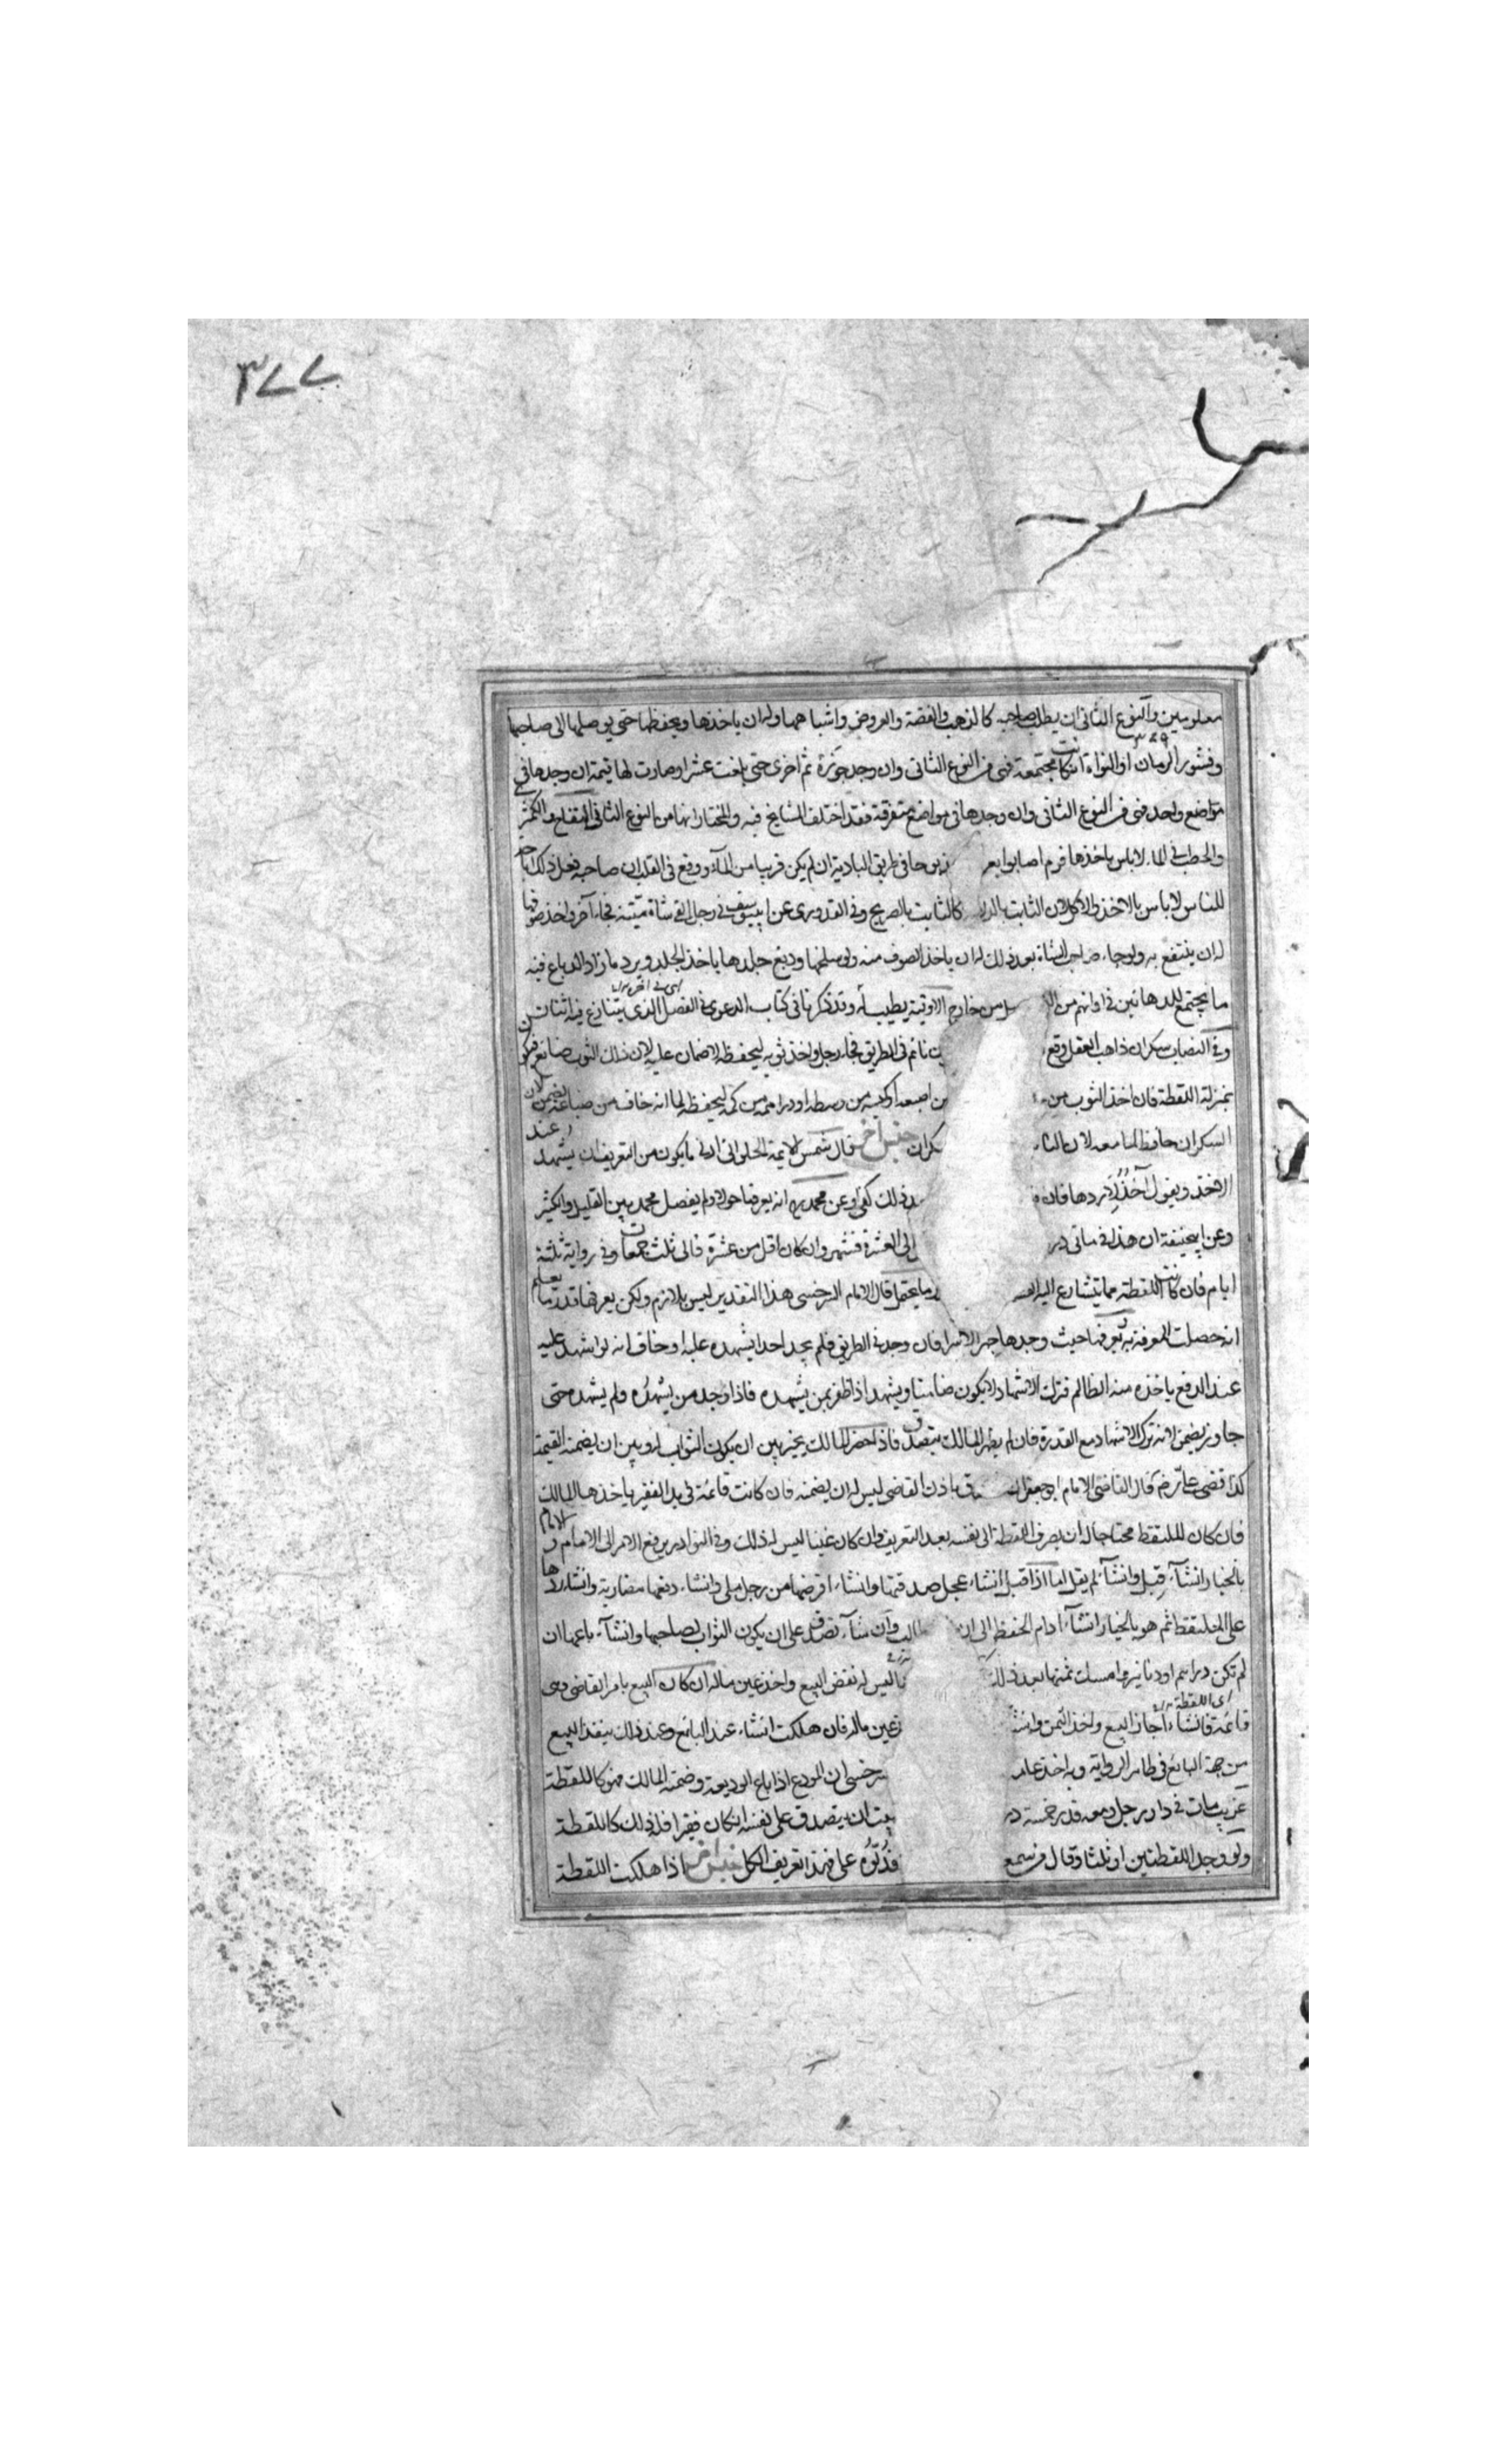 ٣٧٧
معلومين والنوع الثانى ان يطلب صاحبه كالذهب والفضة والعروض واشباهها وله ان ياخذها ويحفظها حتى يوصلها الى صاحبها
وقشور الرمان او النواة ان كانت مجتمعة فهى من النوع الثانى وان وجد جوزة ثم اخرى حتى بلغت عشرا وصارت لها قيمة ان وجدها فى
مواضع واحد فهى من النوع الثانى وان وجدها فى مواضع متفرقة فقد اختلف المشايخ فيه والمختار انها من النوع الثانى التفاح والكمثر
والحطب فى الماء لاباس باخذها قوم اصابوا بعر مذبوحا فى طريق البادية ان لم يكن قريبا من الماء ووقع فى القلب ان صاحبه فعل ذلك اباحة
للناس لاباس بالاخذ والاكل لان الثابت بالدلا كالثابت بالصريح وفى القدورى عن ابى يوسف فى رجل القى شاة ميتة فجاء آخر واخذ صوفها
له ان ينتفع به ولو جاء صاحب الشاة بعد ذلك له ان ياخذ الصوف منه ولو سلخها ودبغ جلدها ياخذ الجلد ويرد ما زاد الدباغ فيه
ما يجتمع للدهانين فى اوانهم من الد من خارج الاوقية يطيب له وقد ذكرنا فى كتاب الدعوى فى الفصل الذى يتنازع فيه اثنان
وفى النصاب سكران ذاهب العقل وقع نائم فى الطريق فجاء رجل واخذ ثوبه ليحفظه لا ضمان عليه لان ذلك الثوب ضائع
بمنزلة اللقطة فان اخذ الثوب من اصبعه او كيسه من وسطه او دراهمه من كمه ليحفظه لما انه خاف من ضياعه يضمن لان
السكران حافظ لما معه لان النا كران جنس آخر قال شمس الايمة الحلوانى ادنى ما يكون من التعريف ان يشهد عند
الاخذ ويقول آخذ لاردها فان ذلك كفى وعن محمد انه يعرفها حولا ولم يفصل محمد بين القليل والكثير
وعن ابى حنيفة ان هذا فى مائى در الى العشرة فشهر وان كان اقل من عشرة فالى ثلث جمعات وفى رواية ثلثة
ايام فان كانت اللقطة مما يتسارع اليه الفسـ ما يعقل قال الامام السرخسى هذا التقدير ليس بلازم ولكن يعرفها قدر ما يعلم
انه حصلت المعرفة به يعرفها حيث وجدها جهرا لا سرا فان وجد فى الطريق فلم يجد احدا يشهده عليه او خاف انه لو اشهد عليه
عند الدفع ياخذه منه الظالم فترك الاشهاد لا يكون ضامنا ويشهد اذا ظفر بمن يشهده فاذا وجد من يشهده ولم يشهده حتى
جاوز يضمن لانه ترك الاشهاد مع القدرة فان لم يظهر المالك يتصدق فاذا حضر المالك يخير بين ان يكون الثواب له وبين ان يضمنه القيمة
كذا قضى على رض قال القاضى الامام ابو جعفر ان ق باذن القاضى ليس له ان يضمنه فان كانت قائمة فى يد الفقير ياخذها المالك
فان كان للملتقط محتاجا له ان يصرف اللقطة الى نفسه بعد التعريف وان كان غنيا ليس له ذلك وفى النوادر يرفع الامر الى الامام والامام
بالخيار انشآء قبل وانشآء لم يقبل اما اذا قبل انشاء عجل صدقتها وانشاء اقرضها من رجل ملى وانشاء دفعها مضاربة وانشاء ردها
على الملتقط ثم هو بالخيار انشآء ادام الحفظ الى ان لب وان شآء تصدق على ان يكون الثواب لصاحبها وانشآء باعها ان
لم تكن دراهم او دنانير وامسك ثمنها بعد ذلك ليس له نقض البيع واخذ عين ماله ان كان البيع بامر القاضى وهى
اى اللقطة
قائمة فانشاء اجاز البيع واخذ الثمن وانشـ عين ماله فان هلكت انشاء عند البائع وعند ذلك ينفذ البيع
من جهة البائع فى ظاهر الرواية وبه اخذ عامـ سرخسى ان المودع اذا باع الوديعة وضمنه المالك فهو كاللقطة
غريب مات فى دار رجل ومعه قدر خمسة در يت ان يتصدق على نفسه ان كان فقيرا فله ذلك كاللقطة
ولو وجد اللقطتين او ثلثا وقال من سمع فدلوه على فهذا تعريف الكل جنس آخر اذا هلكت اللقطة